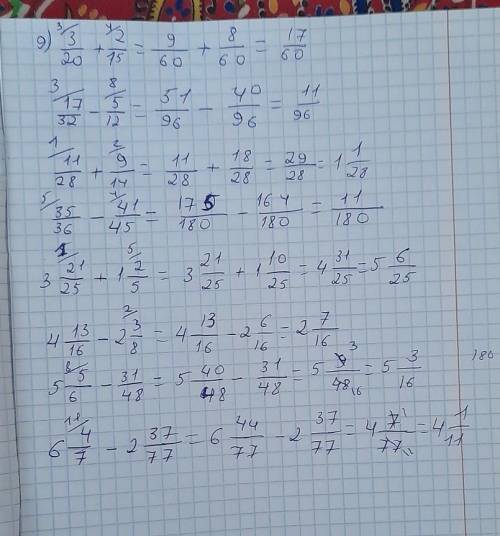 9) ³⁄ 3/20 + ⁴⁄ 2/15 = 9/60 + 8/60 = 17/60
³⁄ 17/32 - ⁸⁄ 5/12 = 51/96 - 40/96 = 11/96
¹⁄ 11/28 + ²⁄ 9/14 = 11/28 + 18/28 = 29/28 = 1 1/28
⁵⁄ 35/36 - ⁴⁄ 41/45 = 175/180 - 164/180 = 11/180
3 ¹⁄ 21/25 + 1 ⁵⁄ 2/5 = 3 21/25 + 1 10/25 = 4 31/25 = 5 6/25
4 13/16 - 2 ²⁄ 3/8 = 4 13/16 - 2 6/16 = 2 7/16
5 ⁸⁄ 5/6 - 31/48 = 5 40/48 - 31/48 = 5 9³/48₁₆ = 5 3/16 180
6 ¹¹⁄ 4/7 - 2 37/77 = 6 44/77 - 2 37/77 = 4 7¹/77₁₁ = 4 1/11